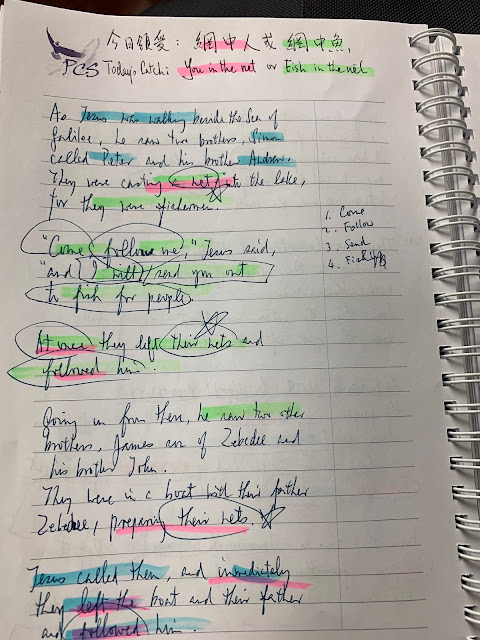 今日領受: 網中人或網中魚,
PCS Today's Catch: You in the net or Fish in the net
As Jesus was walking beside the Sea of
Galilee, he saw two brothers, Simon
called Peter and his brother Andrew.
They were casting a net into the lake,
for they were fishermen.
"Come, follow me," Jesus said,
"and I will send you out
to fish for people.
At once they left their nets and
followed him.
Going on from there, he saw two other
brothers, James son of Zebedee and
his brother John.
They were in a boat with their father
Zebedee, preparing their nets.
Jesus called them, and immediately
they left the boat and their father
and followed him.
1. Come
2. Follow
3. Send
4. Fish